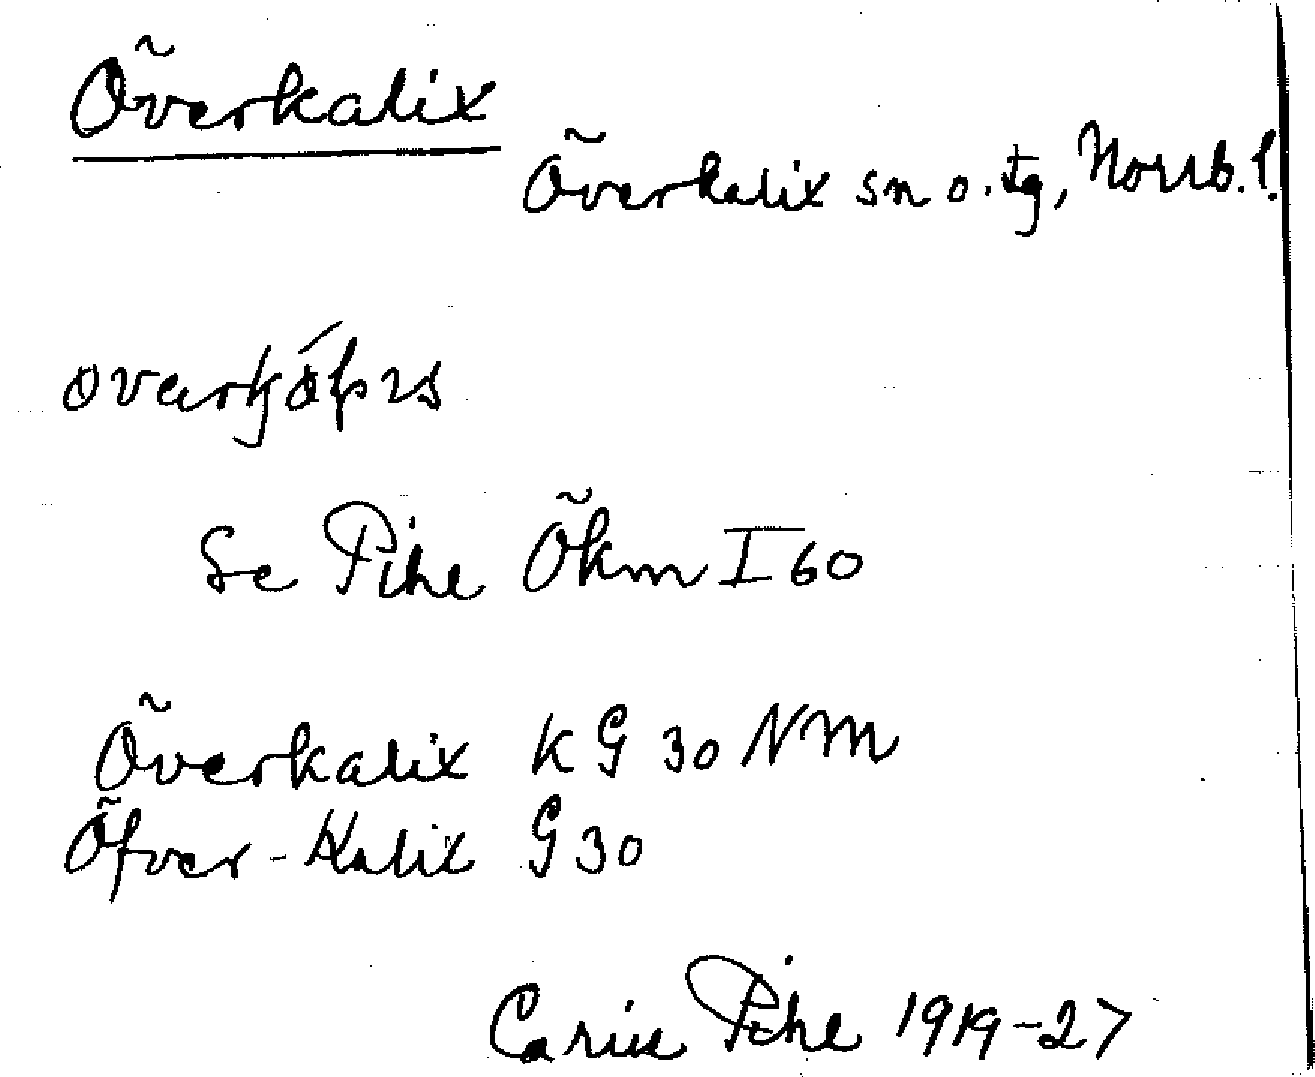 Överkalix
Överkalix sn o. tg, Norrb. l.
Se Pihl Ökm I 60
Överkalix K G 30 NM
Öfver-Kalix G 30
Carin Pihl 1919-27